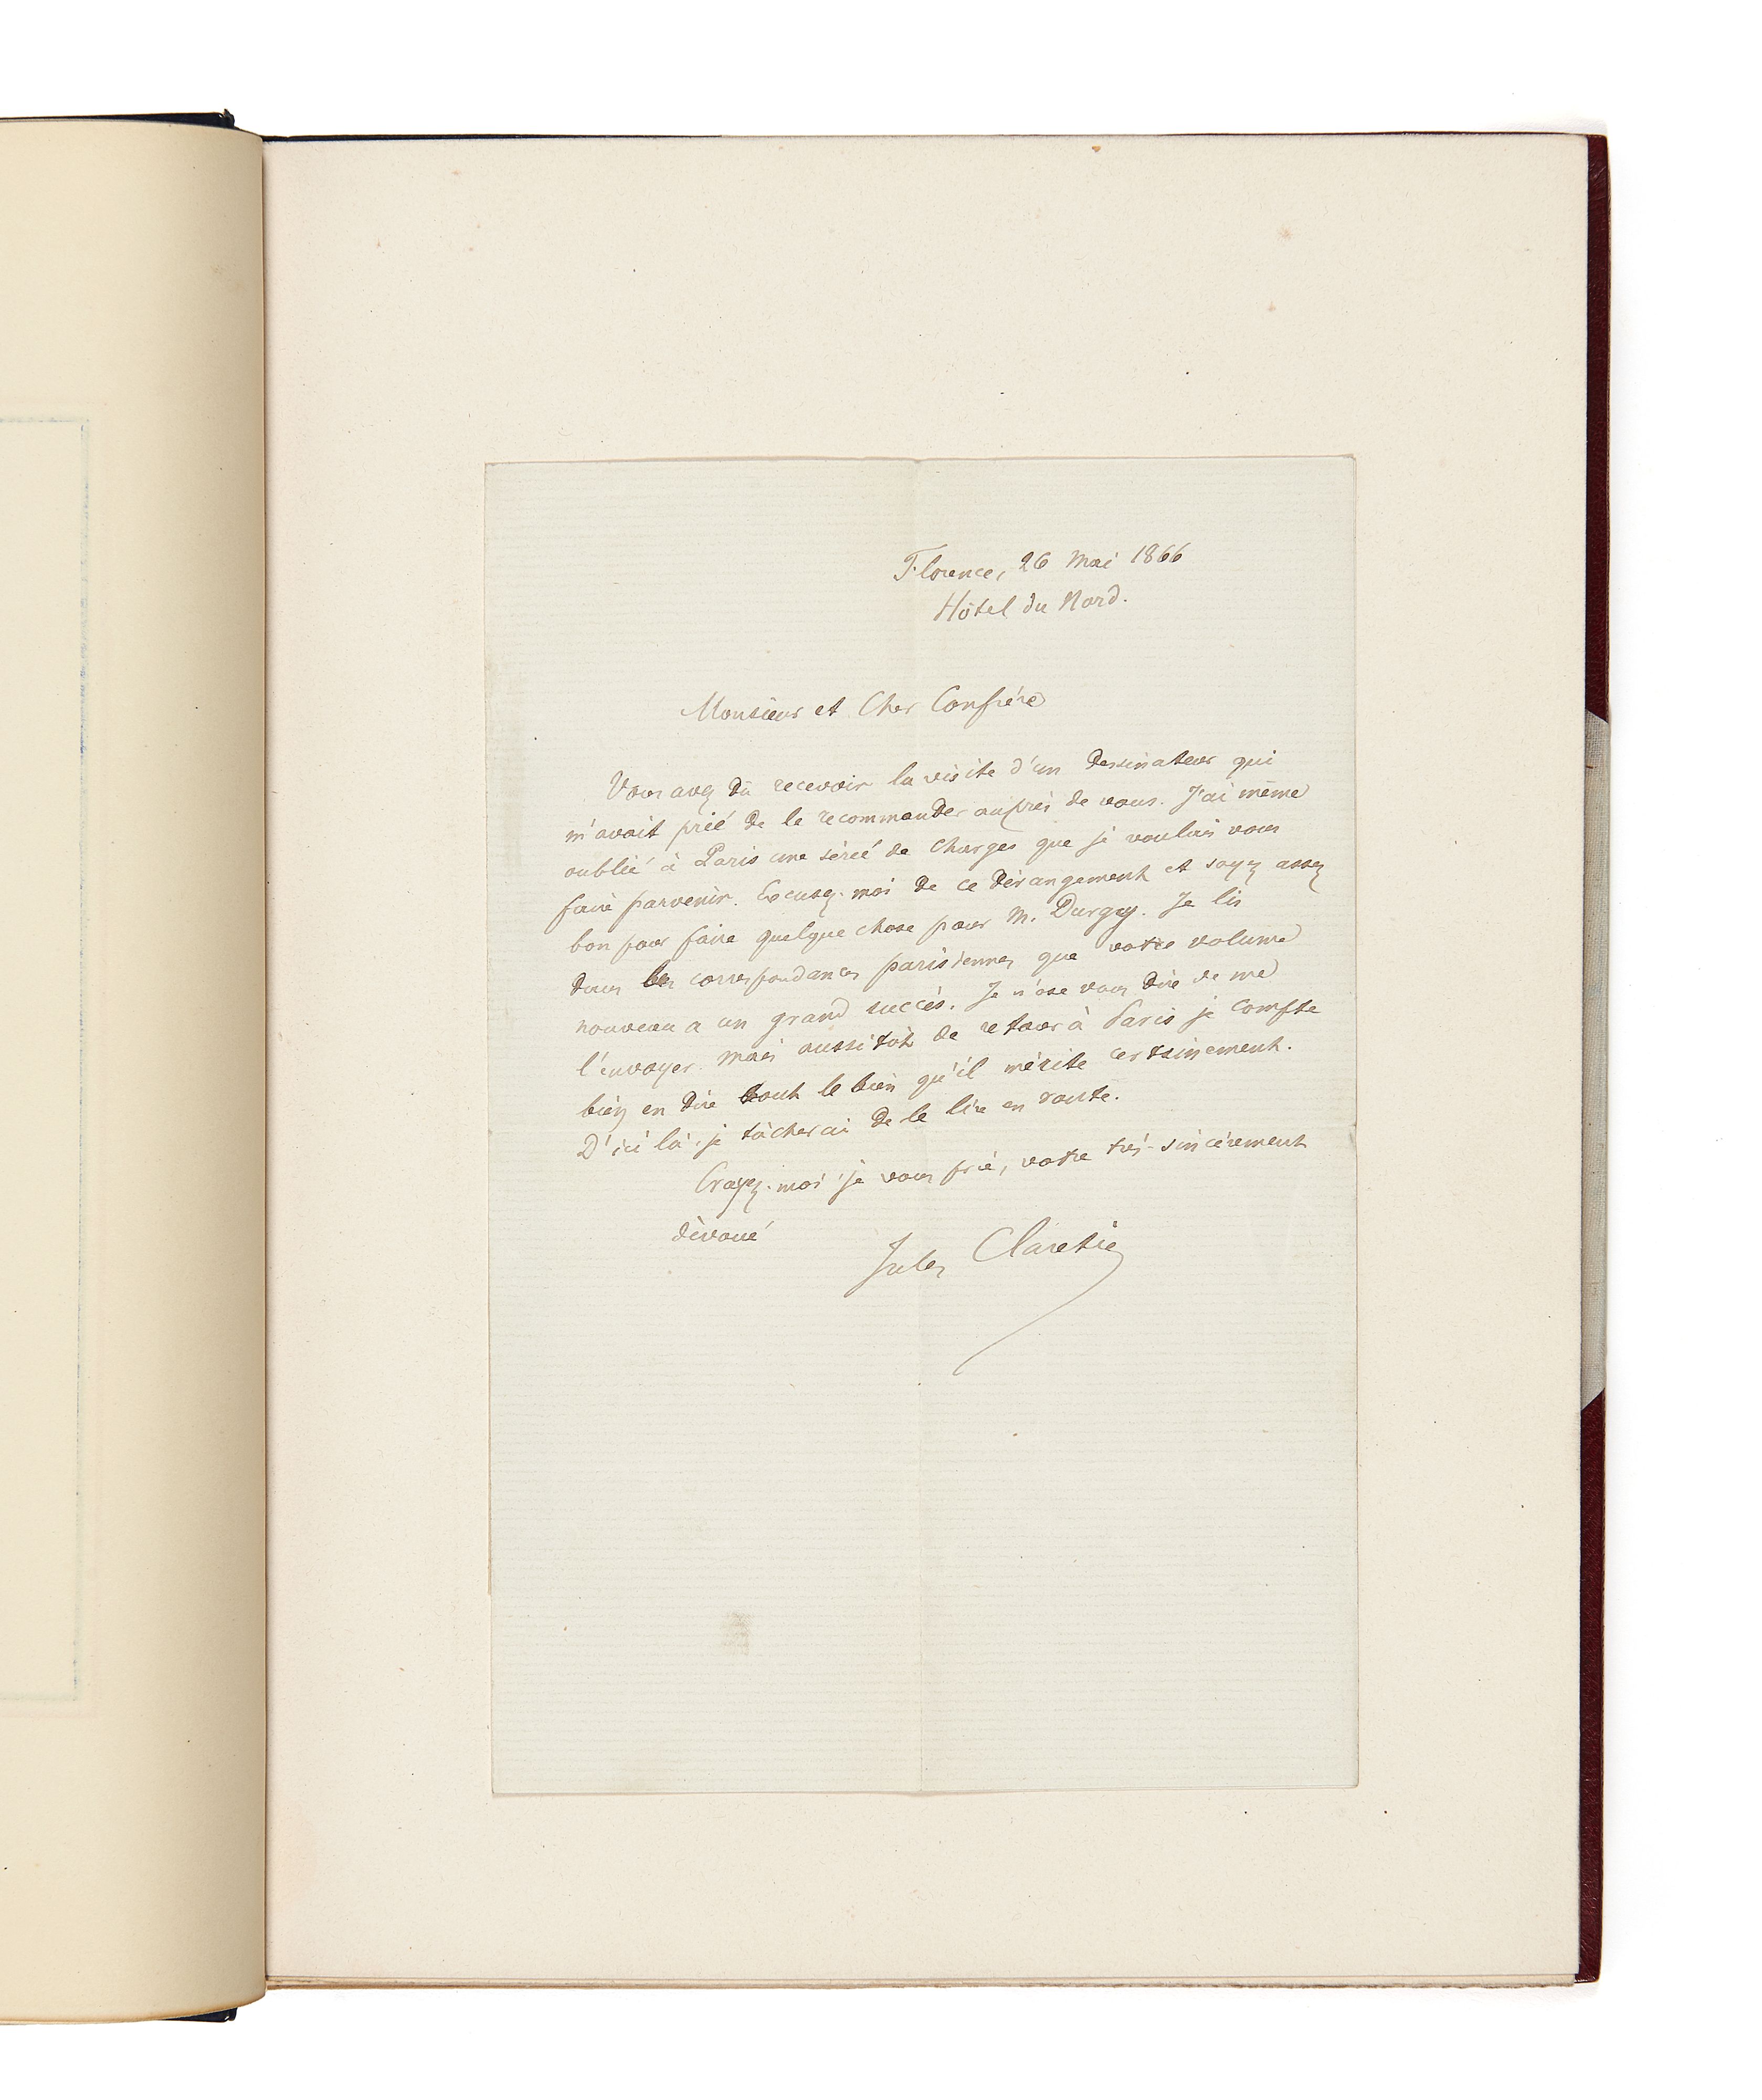 Florence, 26 Mai 1866
Hôtel du Nord.
Monsieur et Cher Confrère
Vous avez dû recevoir la visite d'un dessinateur qui
m'avait prié de le recommander auprès de vous. J'ai même
oublié à Paris une série de charges que je voulais vous
faire parvenir. Excusez-moi de ce dérangement et soyez assez
bon pour faire quelque chose pour M. Je lis
dans les correspondances parisiennes que votre volume
nouveau a un grand succès. Je n'ose vous dire de me
l'envoyer mais aussitôt de retour à Paris je compte
bien en dire tout le bien qu'il mérite certainement.
D'ici là, je tâcherai de le lire en route.
Croyez-moi je vous prie, votre très-sincèrement
dévoué
Jules Claretie